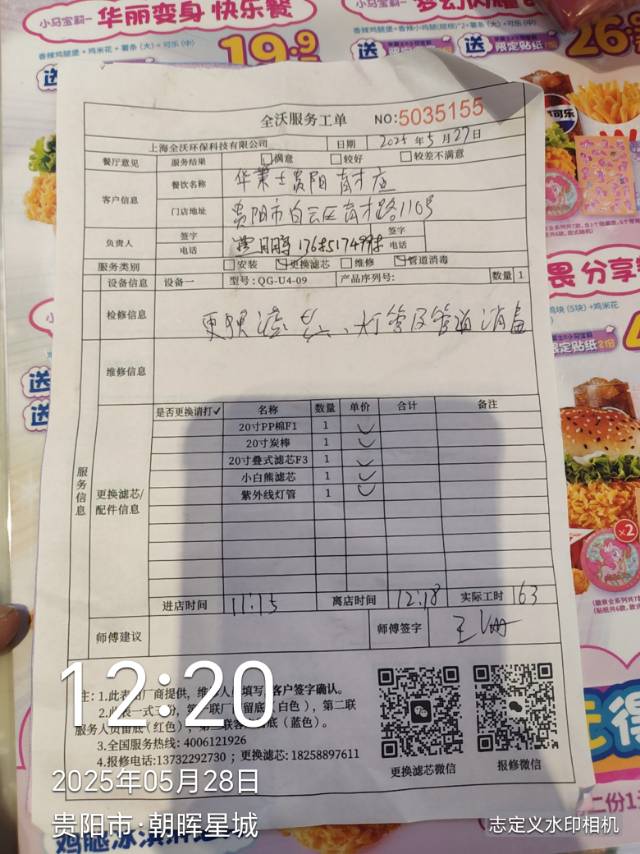 小马宝莉 华丽变身 快乐餐
香辣鸡腿堡+鸡米花+薯条(大)+可乐(中)
送
19.9
送
限定贴纸
26
全沃服务工单 NO:5035155
上海全沃环保科技有限公司 日期 2025年5月27日
餐厅意见 服务结果 满意 较好 较差不满意
客户信息 餐饮名称 华莱士贵阳育才店
门店地址 贵阳市白云区育才路110号
负责人 签字 电话 签字 电话
服务类别 安装 更换滤芯 维修 管道消毒
设备信息 设备一 型号:QG-U4-09 产品序列号: 数量 1
检修信息 更换滤芯、灯管及管道消毒
维修信息
服务信息
更换滤芯/配件信息
是否更换请打✓ 名称 数量 单价 合计 备注
20寸PP棉F1 1
20寸炭棒 1
20寸叠式滤芯F3 1
小白熊滤芯 1
紫外线灯管 1
进店时间 11:15 离店时间 12:18 实际工时 163
师傅建议 师傅签字
注: 1.此表由厂商提供, 维修人员填写, 客户签字确认。
2.此表一式三份, 第一联厂商留底(白色), 第二联
服务人员留底(红色), 第三联客户留底(蓝色)。
3.全国服务热线: 4006121926
4.报修电话:13732292730 ; 更换滤芯: 18258897611
更换滤芯微信 报修微信
畏 分享
送
送
定贴纸2份
×2
12:20
2025年05月28日
贵阳市·朝晖星城
志定义水印相机
二份1
鸡腿冰淇淋